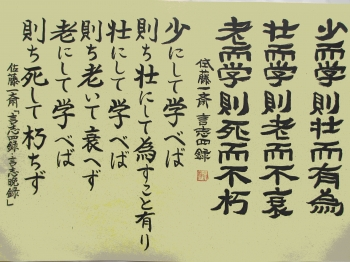 少而学則壮而有為
壮而学則老而不衰
老而学則死而不朽
佐藤一斎 言志四録
少にして学べば
則ち壮にして為すこと有り
壮にして学べば
則ち老いて衰へず
老にして学べば
則ち死して朽ちず
佐藤一斎「言志四録・言志晩録」